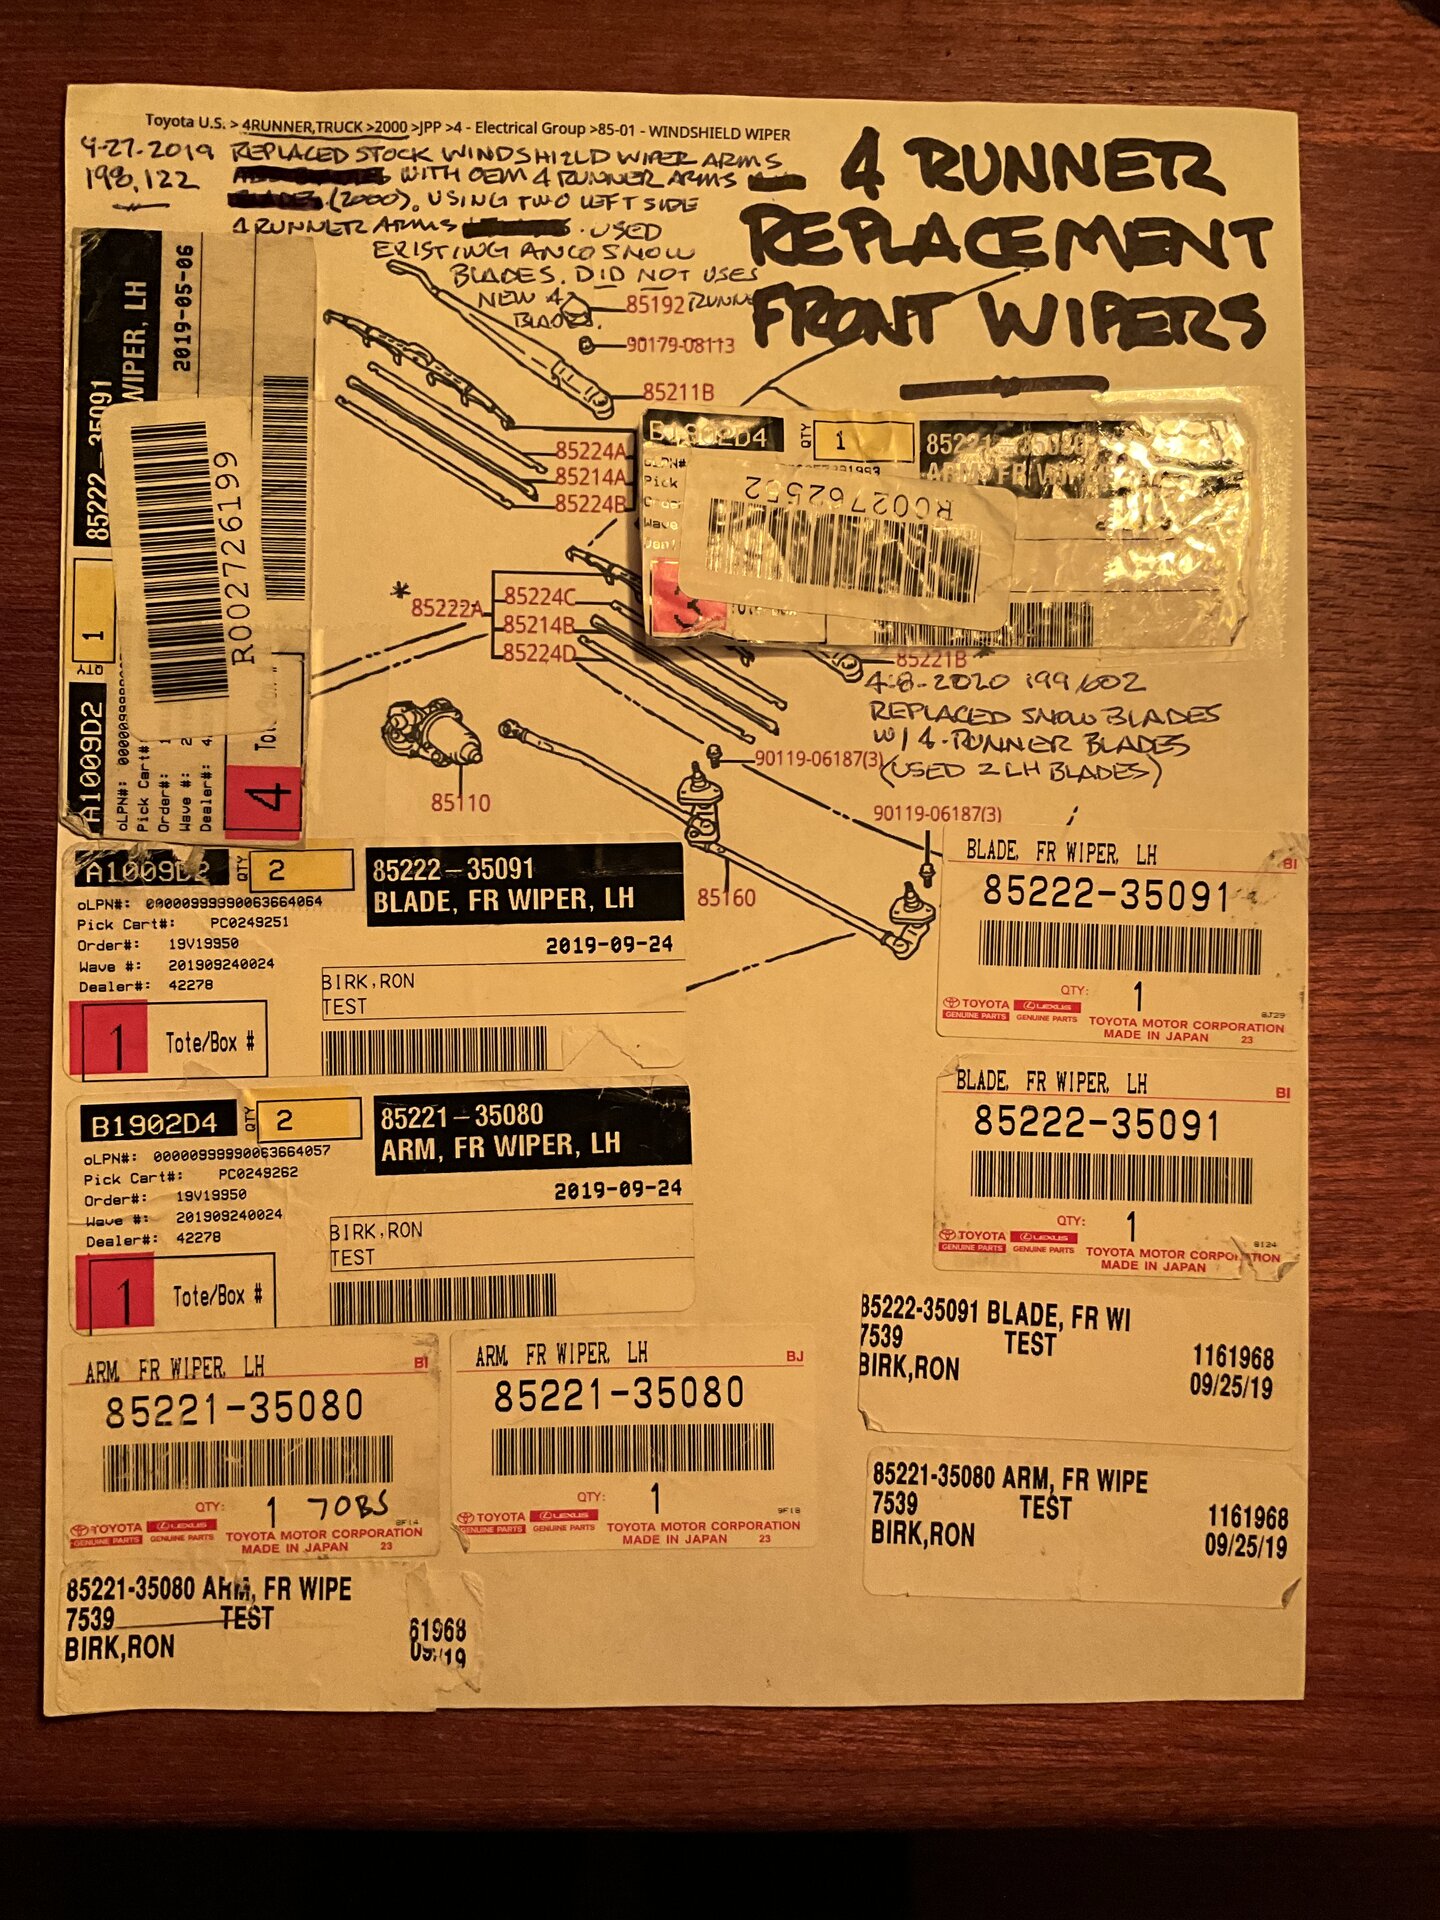 Toyota U.S. > 4RUNNER,TRUCK >2000 >JPP >4 - Electrical Group >85-01 - WINDSHIELD WIPER
4-27-2019
198,122
REPLACED STOCK WINDSHIELD WIPER ARMS
WITH OEM 4 RUNNER ARMS
(2000), USING TWO LEFT SIDE
4 RUNNER ARMS . USED
EXISTING ANCO SNOW
BLADES. DID NOT USES
NEW 4 RUNNE
BLADES.
4 RUNNER
REPLACEMENT
FRONT WIPERS
85192
90179-08113
85211B
85224A
85214A
85224B
*
85222A
85224C
85214B
85224D
85221B
*
4-8-2020 199,602
REPLACED SNOW BLADES
W/ 4-RUNNER BLADES
(USED 2 LH BLADES)
85110
90119-06187(3)
90119-06187(3)
85160
85222-35091
WIPER, LH
2019-05-06
R002726199
QTY 1
A1009D2
oLPN#:
Pick Cart#:
Order#:
Wave #:
Dealer#:
4
B1902D4
QTY 1
85221-35080
ARM, FR WIPER
Pick
Wave
R002762552
A1009D2
QTY 2
85222-35091
BLADE, FR WIPER, LH
oLPN#: 00000999990063664064
Pick Cart#: PC0249251
Order#: 19V19950
Wave #: 201909240024
Dealer#: 42278
2019-09-24
BIRK,RON
TEST
1 Tote/Box #
B1902D4
QTY 2
85221-35080
ARM, FR WIPER, LH
oLPN#: 00000999990063664057
Pick Cart#: PC0249262
Order#: 19V19950
Wave #: 201909240024
Dealer#: 42278
2019-09-24
BIRK,RON
TEST
1 Tote/Box #
BLADE, FR WIPER, LH
BI
85222-35091
QTY: 1
TOYOTA LEXUS
GENUINE PARTS GENUINE PARTS
8J29
TOYOTA MOTOR CORPORATION
MADE IN JAPAN 23
BLADE, FR WIPER, LH
BI
85222-35091
QTY: 1
TOYOTA LEXUS
GENUINE PARTS GENUINE PARTS
TOYOTA MOTOR CORPORATION
MADE IN JAPAN
85222-35091 BLADE, FR WI
7539 TEST
BIRK,RON
1161968
09/25/19
ARM, FR WIPER, LH
BI
85221-35080
QTY: 1 70BS
TOYOTA LEXUS
GENUINE PARTS GENUINE PARTS
9F14
TOYOTA MOTOR CORPORATION
MADE IN JAPAN 23
ARM, FR WIPER, LH
BJ
85221-35080
QTY: 1
TOYOTA LEXUS
GENUINE PARTS GENUINE PARTS
9F18
TOYOTA MOTOR CORPORATION
MADE IN JAPAN 23
85221-35080 ARM, FR WIPE
7539 TEST
BIRK,RON
1161968
09/25/19
85221-35080 ARM, FR WIPE
7539 TEST
BIRK,RON
61968